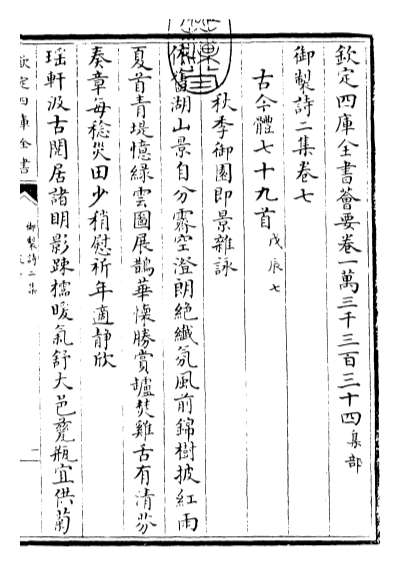 欽定四庫全書薈要卷一萬三千三百三十四 集部
御製詩二集卷七
古今體七十九首 戊辰七
秋季御園即景雜詠
依舊湖山景自分霽空澄朗絕纖氛風前錦樹披紅雨
夏首青堤憶綠雲圖展鵲華懷勝賞爐焚雞舌有清芬
奏章每稔災田少稍慰祈年適靜欣
瑶軒汲古閱居諸明影踈櫺暖氣舒大邑甆瓶宜供菊
欽定四庫全書
御製詩二集
一